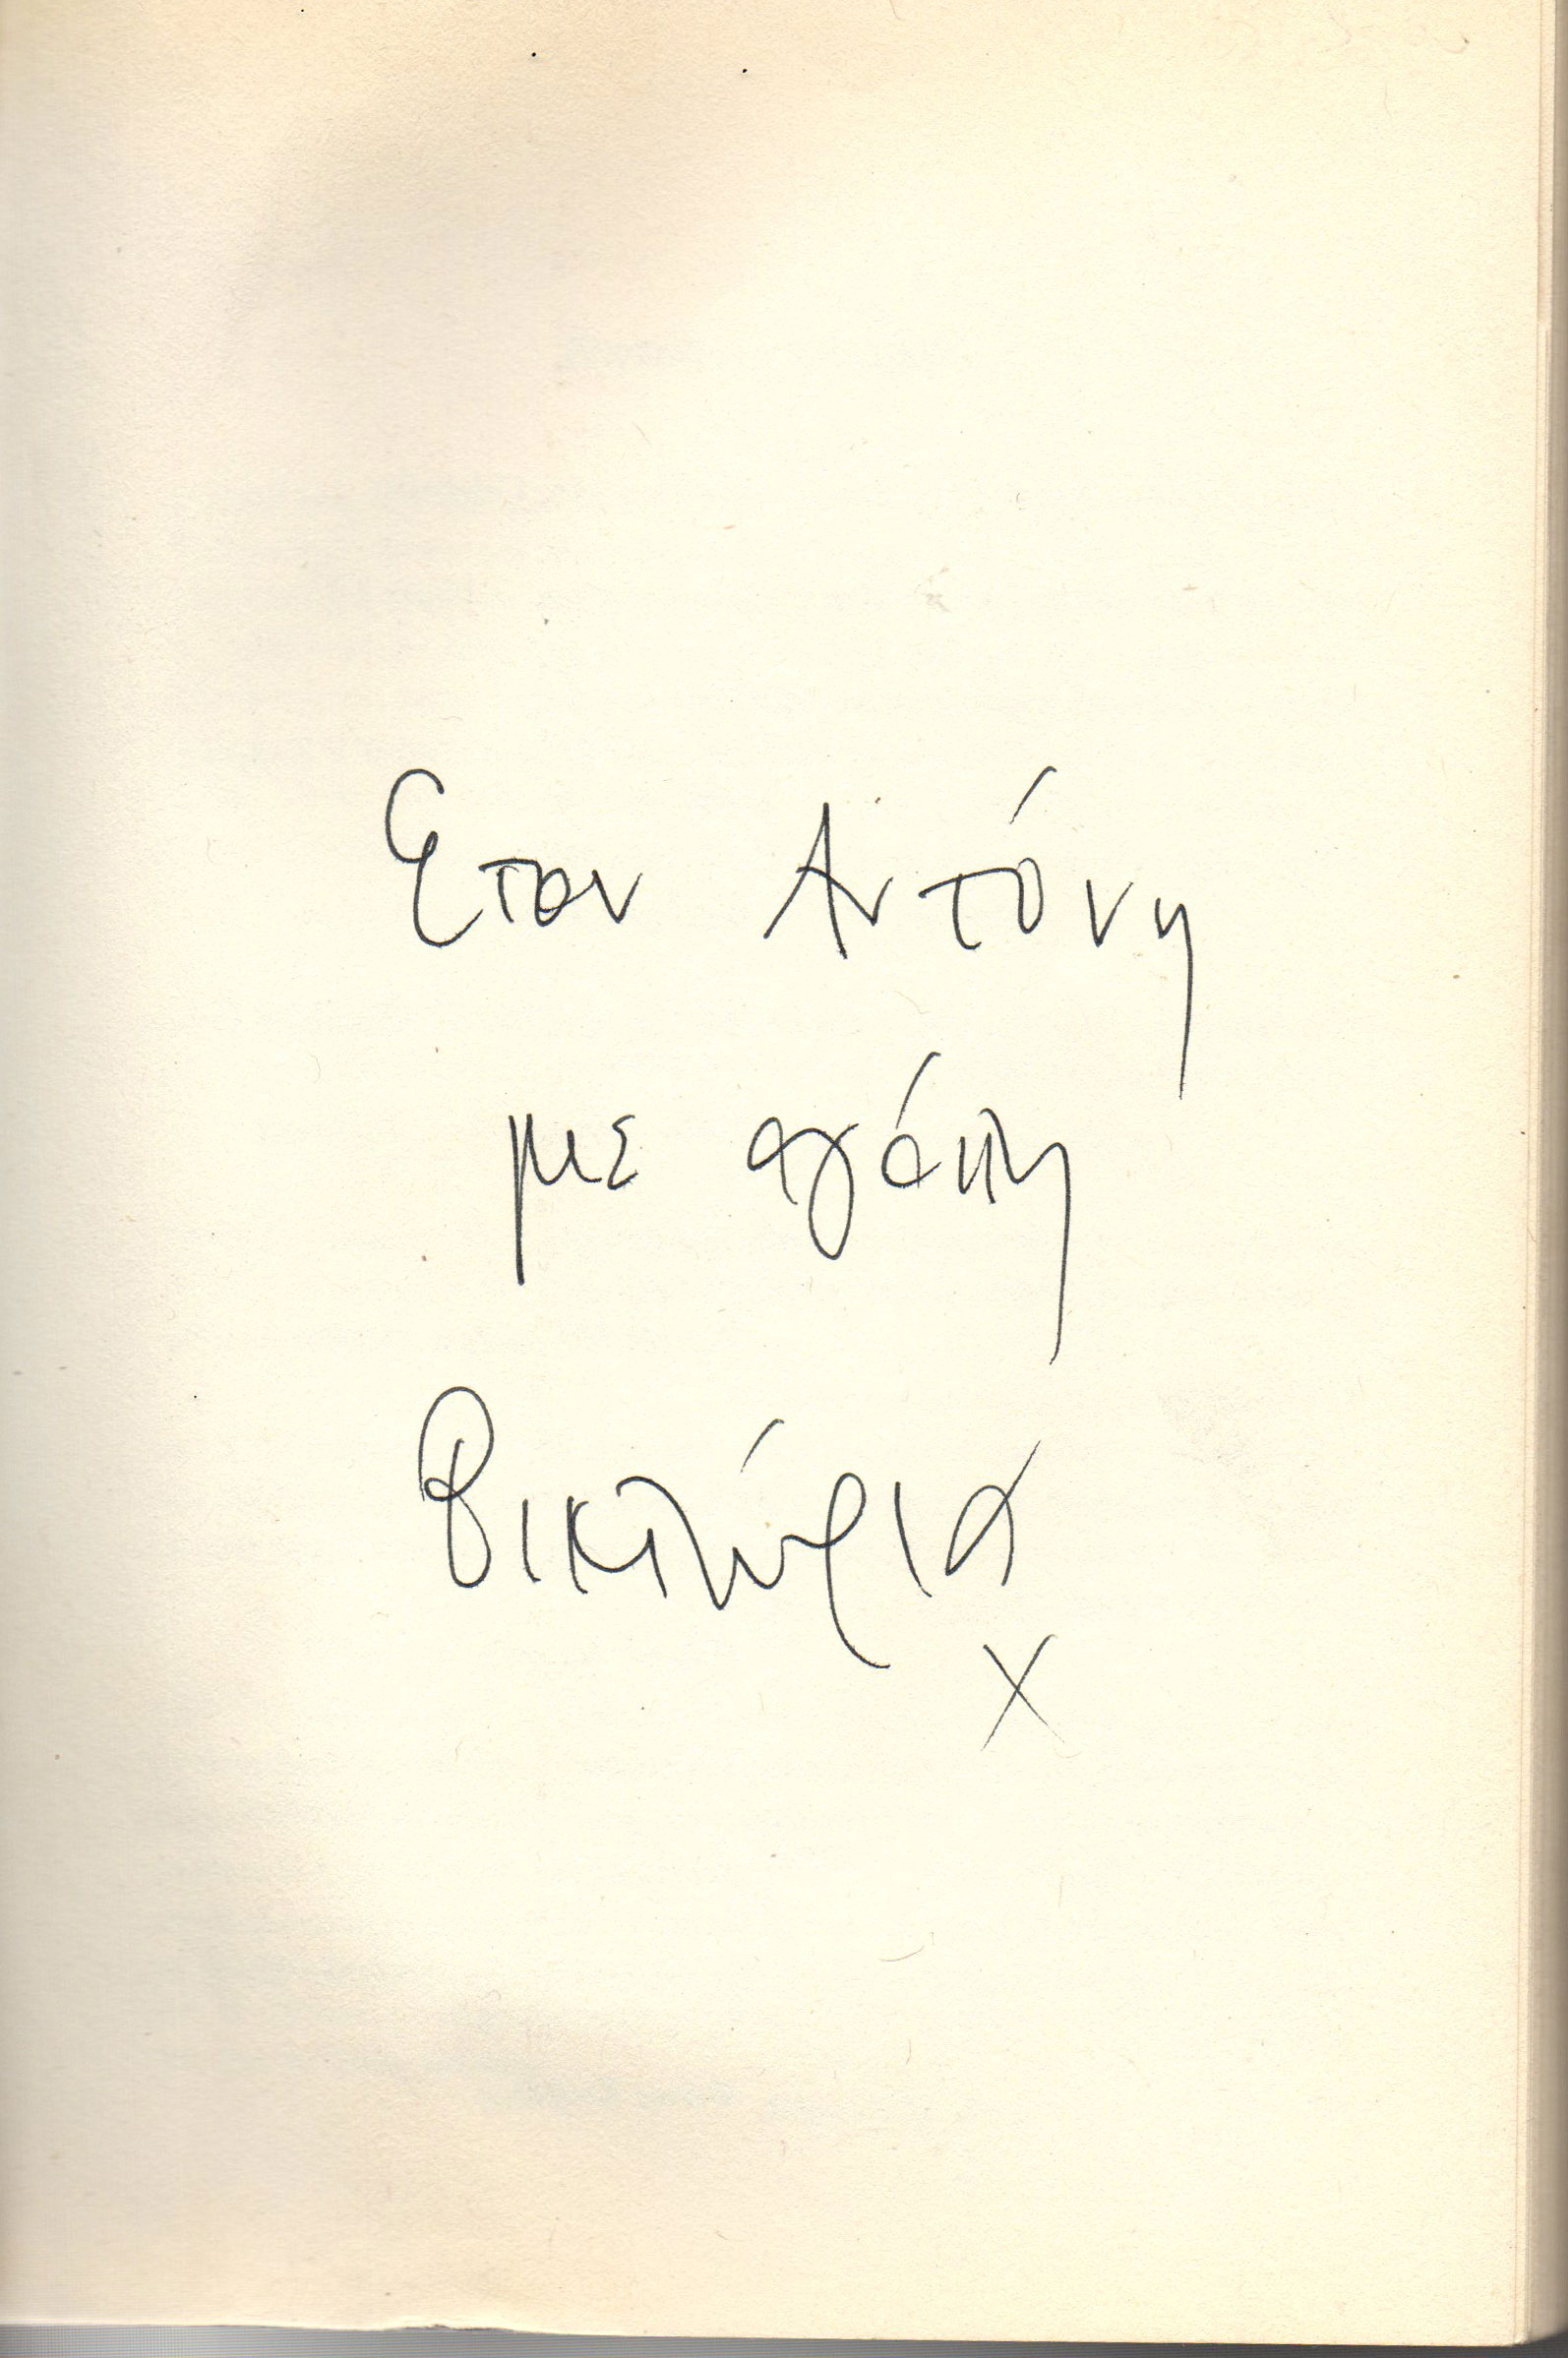 Στον Αντόνη
με αγάπη
Βικτώρια
x